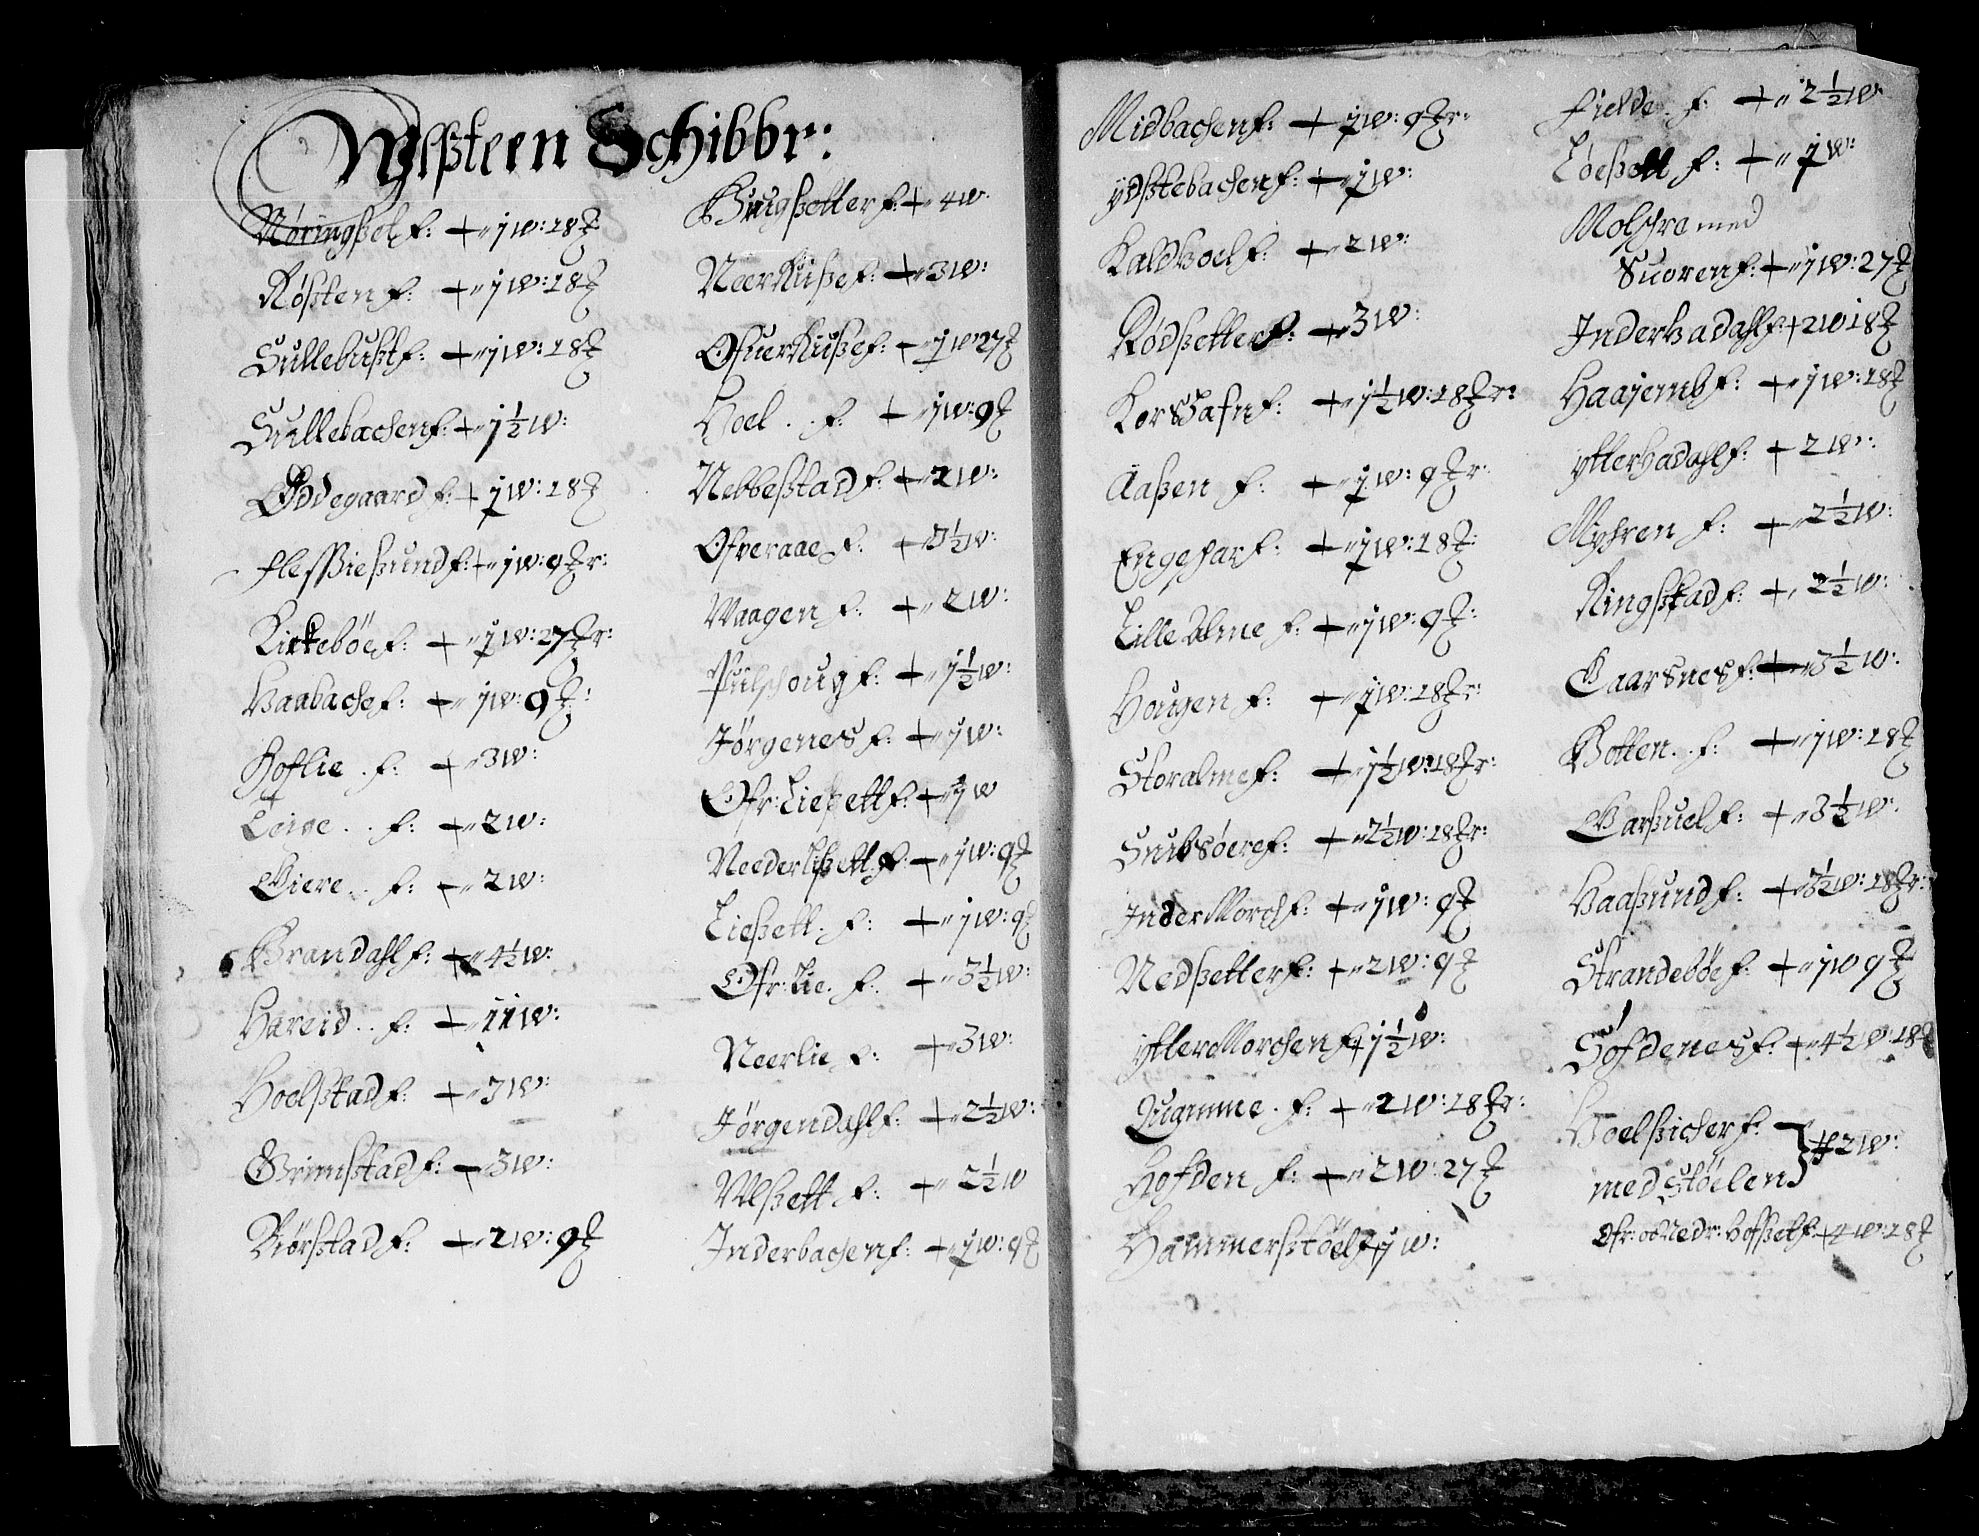 Wlßteen Schibbr:
Nøringßet f: + 1 w: 18 ℔
Røßten f: + 1 w: 18 ℔
Sullebust f: + 1 w: 18 ℔
Sullebachen f: + 1½ w:
Ødegaard f: + 1 w: 18 ℔
flessiesund f: + 1 w: 9 ℔r:
Kirkebøe f: + 1 w: 27 ℔r:
Vaabache f: + 1 w: 9 ℔:
Hoflie . f: + 3 w:
Teige . . f: + 2 w:
Giere . . f: + 2 w:
Brandahl f: + 4½ w:
Hareid . . f: + 11 w:
Hoelstad f: + 3 w:
Grimstad f: + 3 w:
Biørstad f: + 2 w: 9 ℔
Hugßetter f: + 4 w:
Neerhuse f: + 3 w:
Ofuerhuse f: + 1 w 27 ℔
Hoel . . f: + 1 w: 9 ℔
Nebbestad f: + 2 w:
Ofveraae f: + 3½ w:
Waagen f: + 2 w:
Pulshoug f: + 1½ w:
Jørgenes f: + 1 w:
Ofr: Ließett f: + 1 w
Neederlißett f: + 1 w: 9 ℔
Ließett . f: + 1 w: 9 ℔
Ofr: Lie . f: + 3½ w:
Neerlie f: + 3 w:
Jørgendahl f: + 2½ w:
Vlßett f: + 2½ w
Inderbachen f: + 1 w: 9 ℔
Midbachen f: + 1 w: 9 ℔r:
ydstebachen f: + 1 w:
Kaldhoel f: + 2 w:
Rødßetter f: + 3 w:
Korshafn f: + 1½ w: 18 ℔r:
Aaßen f: + 1 w: 9 ℔r:
Engeshar f: + 1 w: 18 ℔:
Lille Alme f: + 1 w: 9 ℔:
Hougen f: + 1 w: 18 ℔r:
Storalme f: + 1½ w: 18 ℔r:
Snibsøere f: + 2½ w: 18 ℔r:
Inder Morch f: + 1 w: 9 ℔
Nedßetter f: + 2 w: 9 ℔
ytter Morchen f: + 1½ w:
Quamme . f: + 2 w: 18 ℔r:
Hofden f: + 2 w: 27 ℔
Hammerstöel f: + 1 w:
fielde . f: + 2½ w:
Løeßett f: + 1 w:
Molshre med
Suoren f: + 1 w: 27 ℔
Indervadahl f: + 2 w 18 ℔
Haajemb f: + 1 w: 18 ℔
yttervadahl f: + 2 w:
Myhren f: + 2½ w:
Ringstad f: + 2½ w:
Gaarsnes f: + 3½ w:
Botten . . f: + 1 w: 18 ℔
Garßuel f: + 3½ w:
Vaaßund f: + 3½ w: 18 ℔r:
Strandebøe f: + 1 w 9 ℔
Søfdenes f: + 4½ w: 18 ℔
Hoelßicher f: } + 2 w:
med Støelen
Ofr: oc Nedr: Hofßeth f: + 4 w: 18 ℔